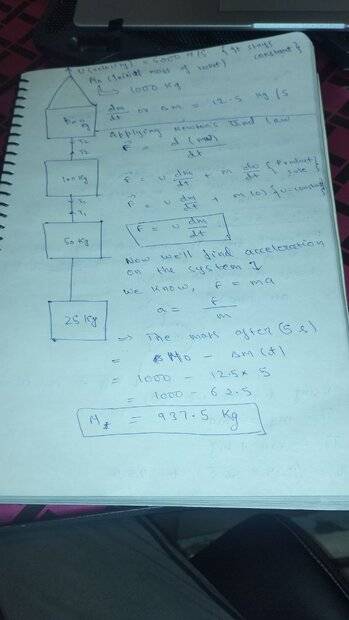 U(velocity) = 5000 m/s { It stays constant }
M₀ (Initial mass of rocket)
↳ 1000 Kg
dm/dt or ΔM = 12.5 kg/s
Applying Newton's IInd law
F = d(mv)/dt
F = v dm/dt + m dv/dt { Product rule }
F = v dm/dt + m(0) { v = constant }
F = v dm/dt
Now we'll find acceleration
on the system ↴
We know, F = ma
a = F/m
⇒ The mass after (5 s)
= M0 - ΔM(t)
= 1000 - 12.5 × 5
= 1000 - 62.5
M_t = 937.5 Kg
T2
100 Kg
T1
T1
50 Kg
25 Kg